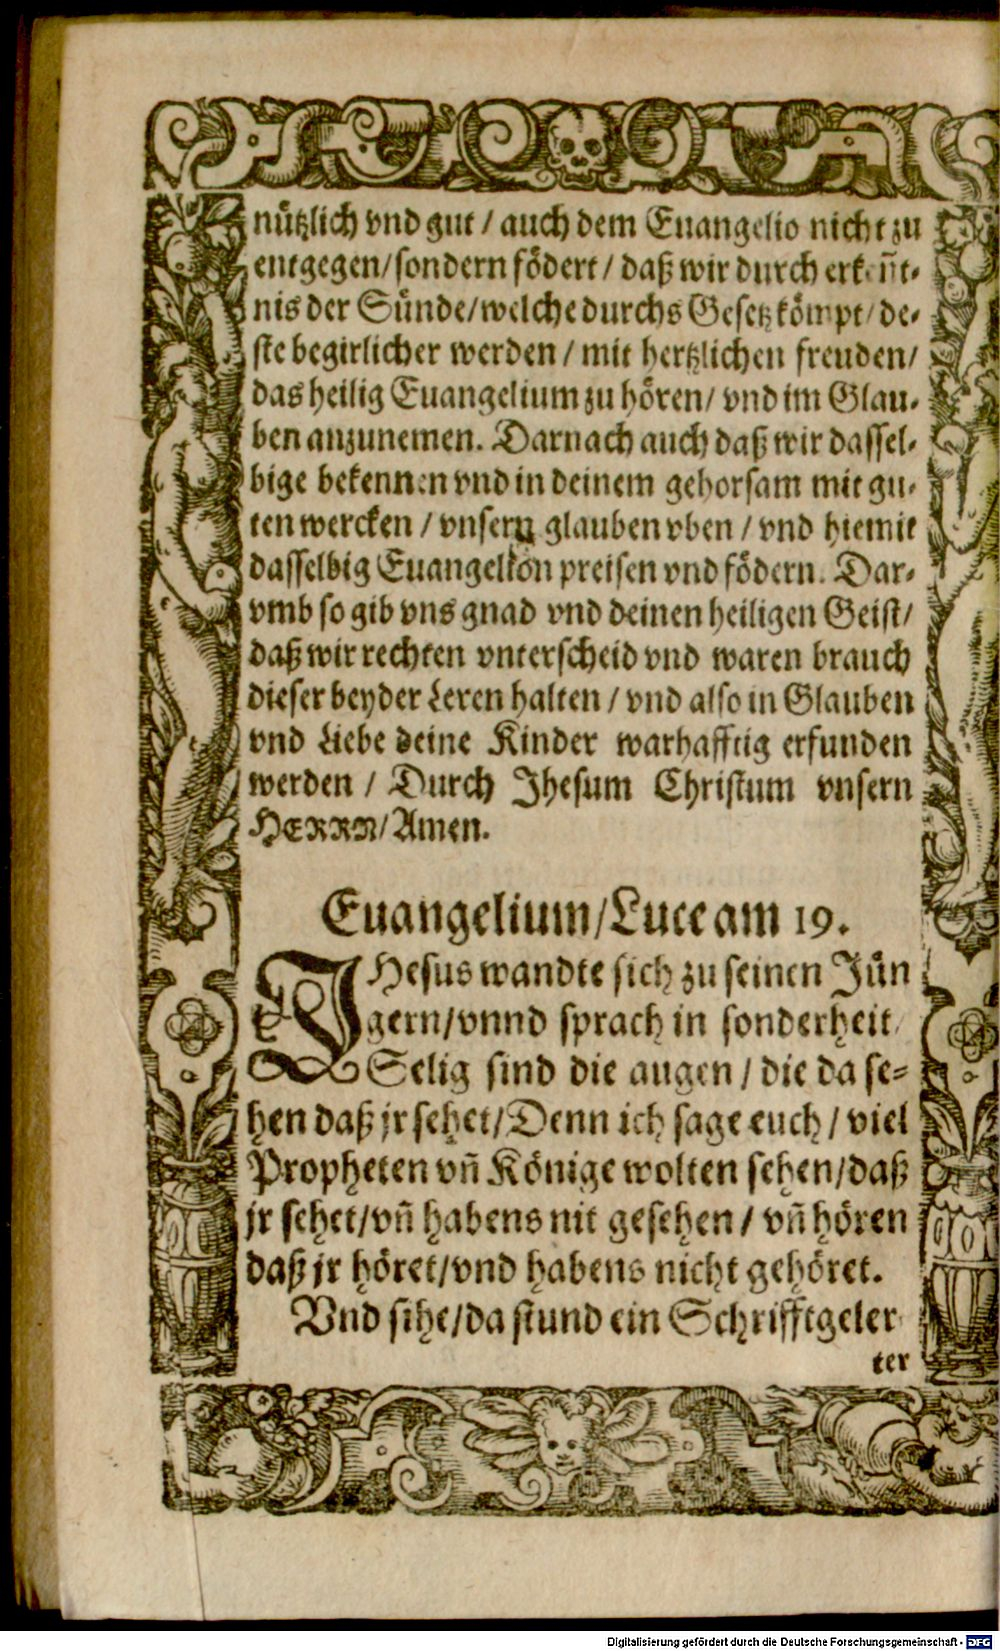 nützlich vnd gut / auch dem Euangelio nicht zu
entgegen/sondern födert / daß wir durch erkeñt-
nis der Sünde/welche durchs Gesetz kömpt/de-
ste begirlicher werden / mit hertzlichen freuden/
das heilig Euangelium zu hören/ vnd im Glau-
ben anzunemen. Darnach auch daß wir dassel-
bige bekennen vnd in deinem gehorsam mit gu-
ten wercken / vnsern glauben vben / vnd hiemit
dasselbig Euangelion preisen vnd födern. Dar-
vmb so gib vns gnad vnd deinen heiligen Geist/
daß wir rechten vnterscheid vnd waren brauch
dieser beyder Leren halten / vnd also in Glauben
vnd Liebe deine Kinder warhafftig erfunden
werden / Durch Jhesum Christum vnsern
HERRN/Amen.
Euangelium/Luce am 19.
JHesus wandte sich zu seinen Jün
gern/vnnd sprach in sonderheit/
Selig sind die augen / die da se-
hen daß jr sehet/Denn ich sage euch / viel
Propheten vñ Könige wolten sehen/daß
jr sehet/vñ habens nit gesehen / vñ hören
daß jr höret/vnd habens nicht gehöret.
Vnd sihe/da stund ein Schrifftgeler
ter
Digitalisierung gefördert durch die Deutsche Forschungsgemeinschaft - DFG